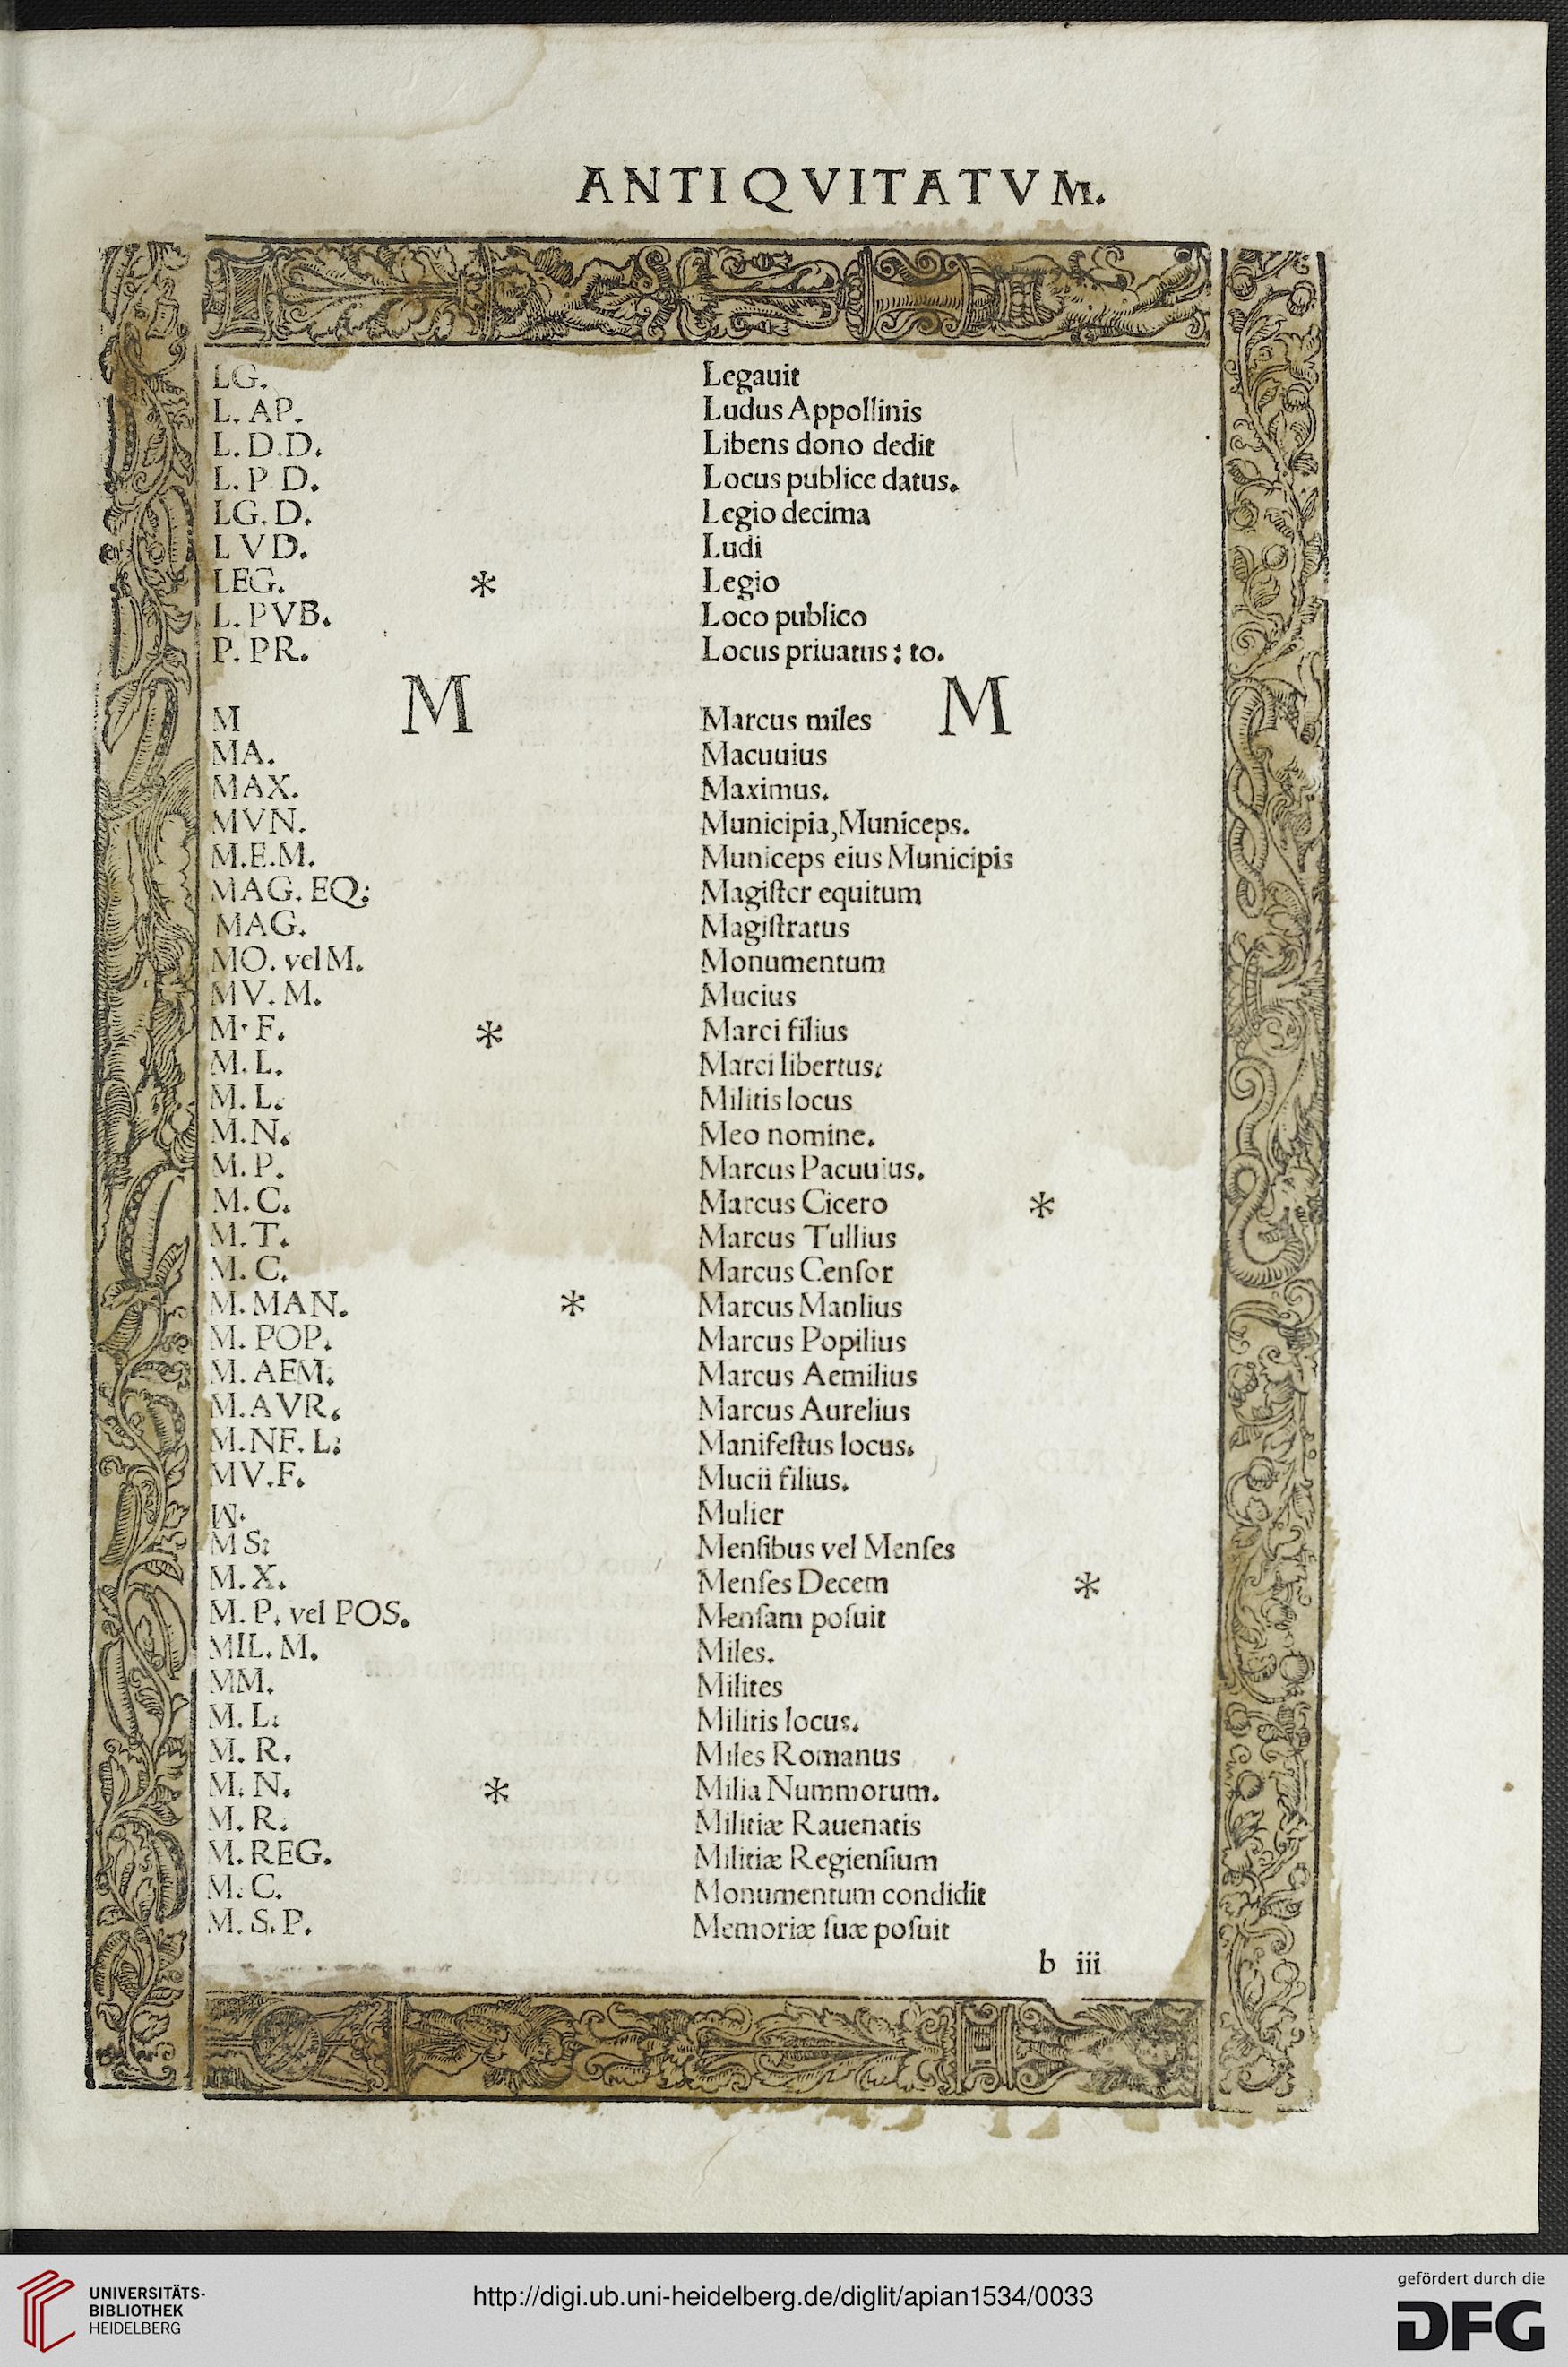 ANTIQVITATVM.
LG. Legauit
L. AP. Ludus Appollinis
L. D.D. Libens dono dedit
L. P D. Locus publice datus.
LG. D. Legio decima
LVD. Ludi
LEG. * Legio
L. PVB. Loco publico
P. PR. Locus priuatus: to.
M M
M Marcus miles
MA. Macuuius
MAX. Maximus.
MVN. Municipia,Municeps.
M.E.M. Municeps eius Municipis
MAG. EQ: Magiſter equitum
MAG. Magiſtratus
MO. vel M. Monumentum
MV. M. Mucius
M· F. * Marci filius
M. L. Marci libertus:
M. L: Militis locus
M.N. Meo nomine.
M. P. Marcus Pacuuius.
M. C. Marcus Cicero *
M. T. Marcus Tullius
M. C. Marcus Cenſor
M. MAN. * Marcus Manlius
M. POP. Marcus Popilius
M. AEM. Marcus Aemilius
M.AVR. Marcus Aurelius
M.NF. L: Manifeſtus locus.
MV.F. Mucii filius.
Mulier
MS: Menſibus vel Menſes
M. X. Menſes Decem *
M. P. vel POS. Menſam poſuit
MIL. M. Miles.
MM. Milites
M. L: Militis locus.
M. R. Miles Romanus
M. N. * Milia Nummorum.
M. R. Militiæ Rauenatis
M. REG. Militiæ Regienſium
M. C. Monumentum condidit
M. S. P. Memoriæ ſuæ poſuit
b iii
UNIVERSITÄTS-
BIBLIOTHEK
HEIDELBERG
http://digi.ub.uni-heidelberg.de/diglit/apian1534/0033
gefördert durch die
DFG